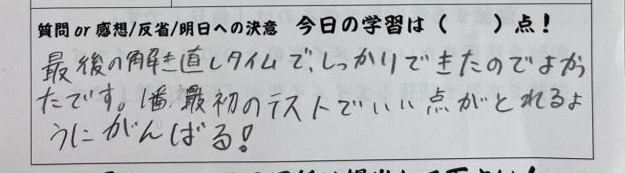 質問 or 感想/反省/明日への決意 今日の学習は（　　）点！
最後の解き直しタイムで、しっかりできたのでよかっ
たです。1番最初のテストでいい点がとれるよ
うにがんばる！